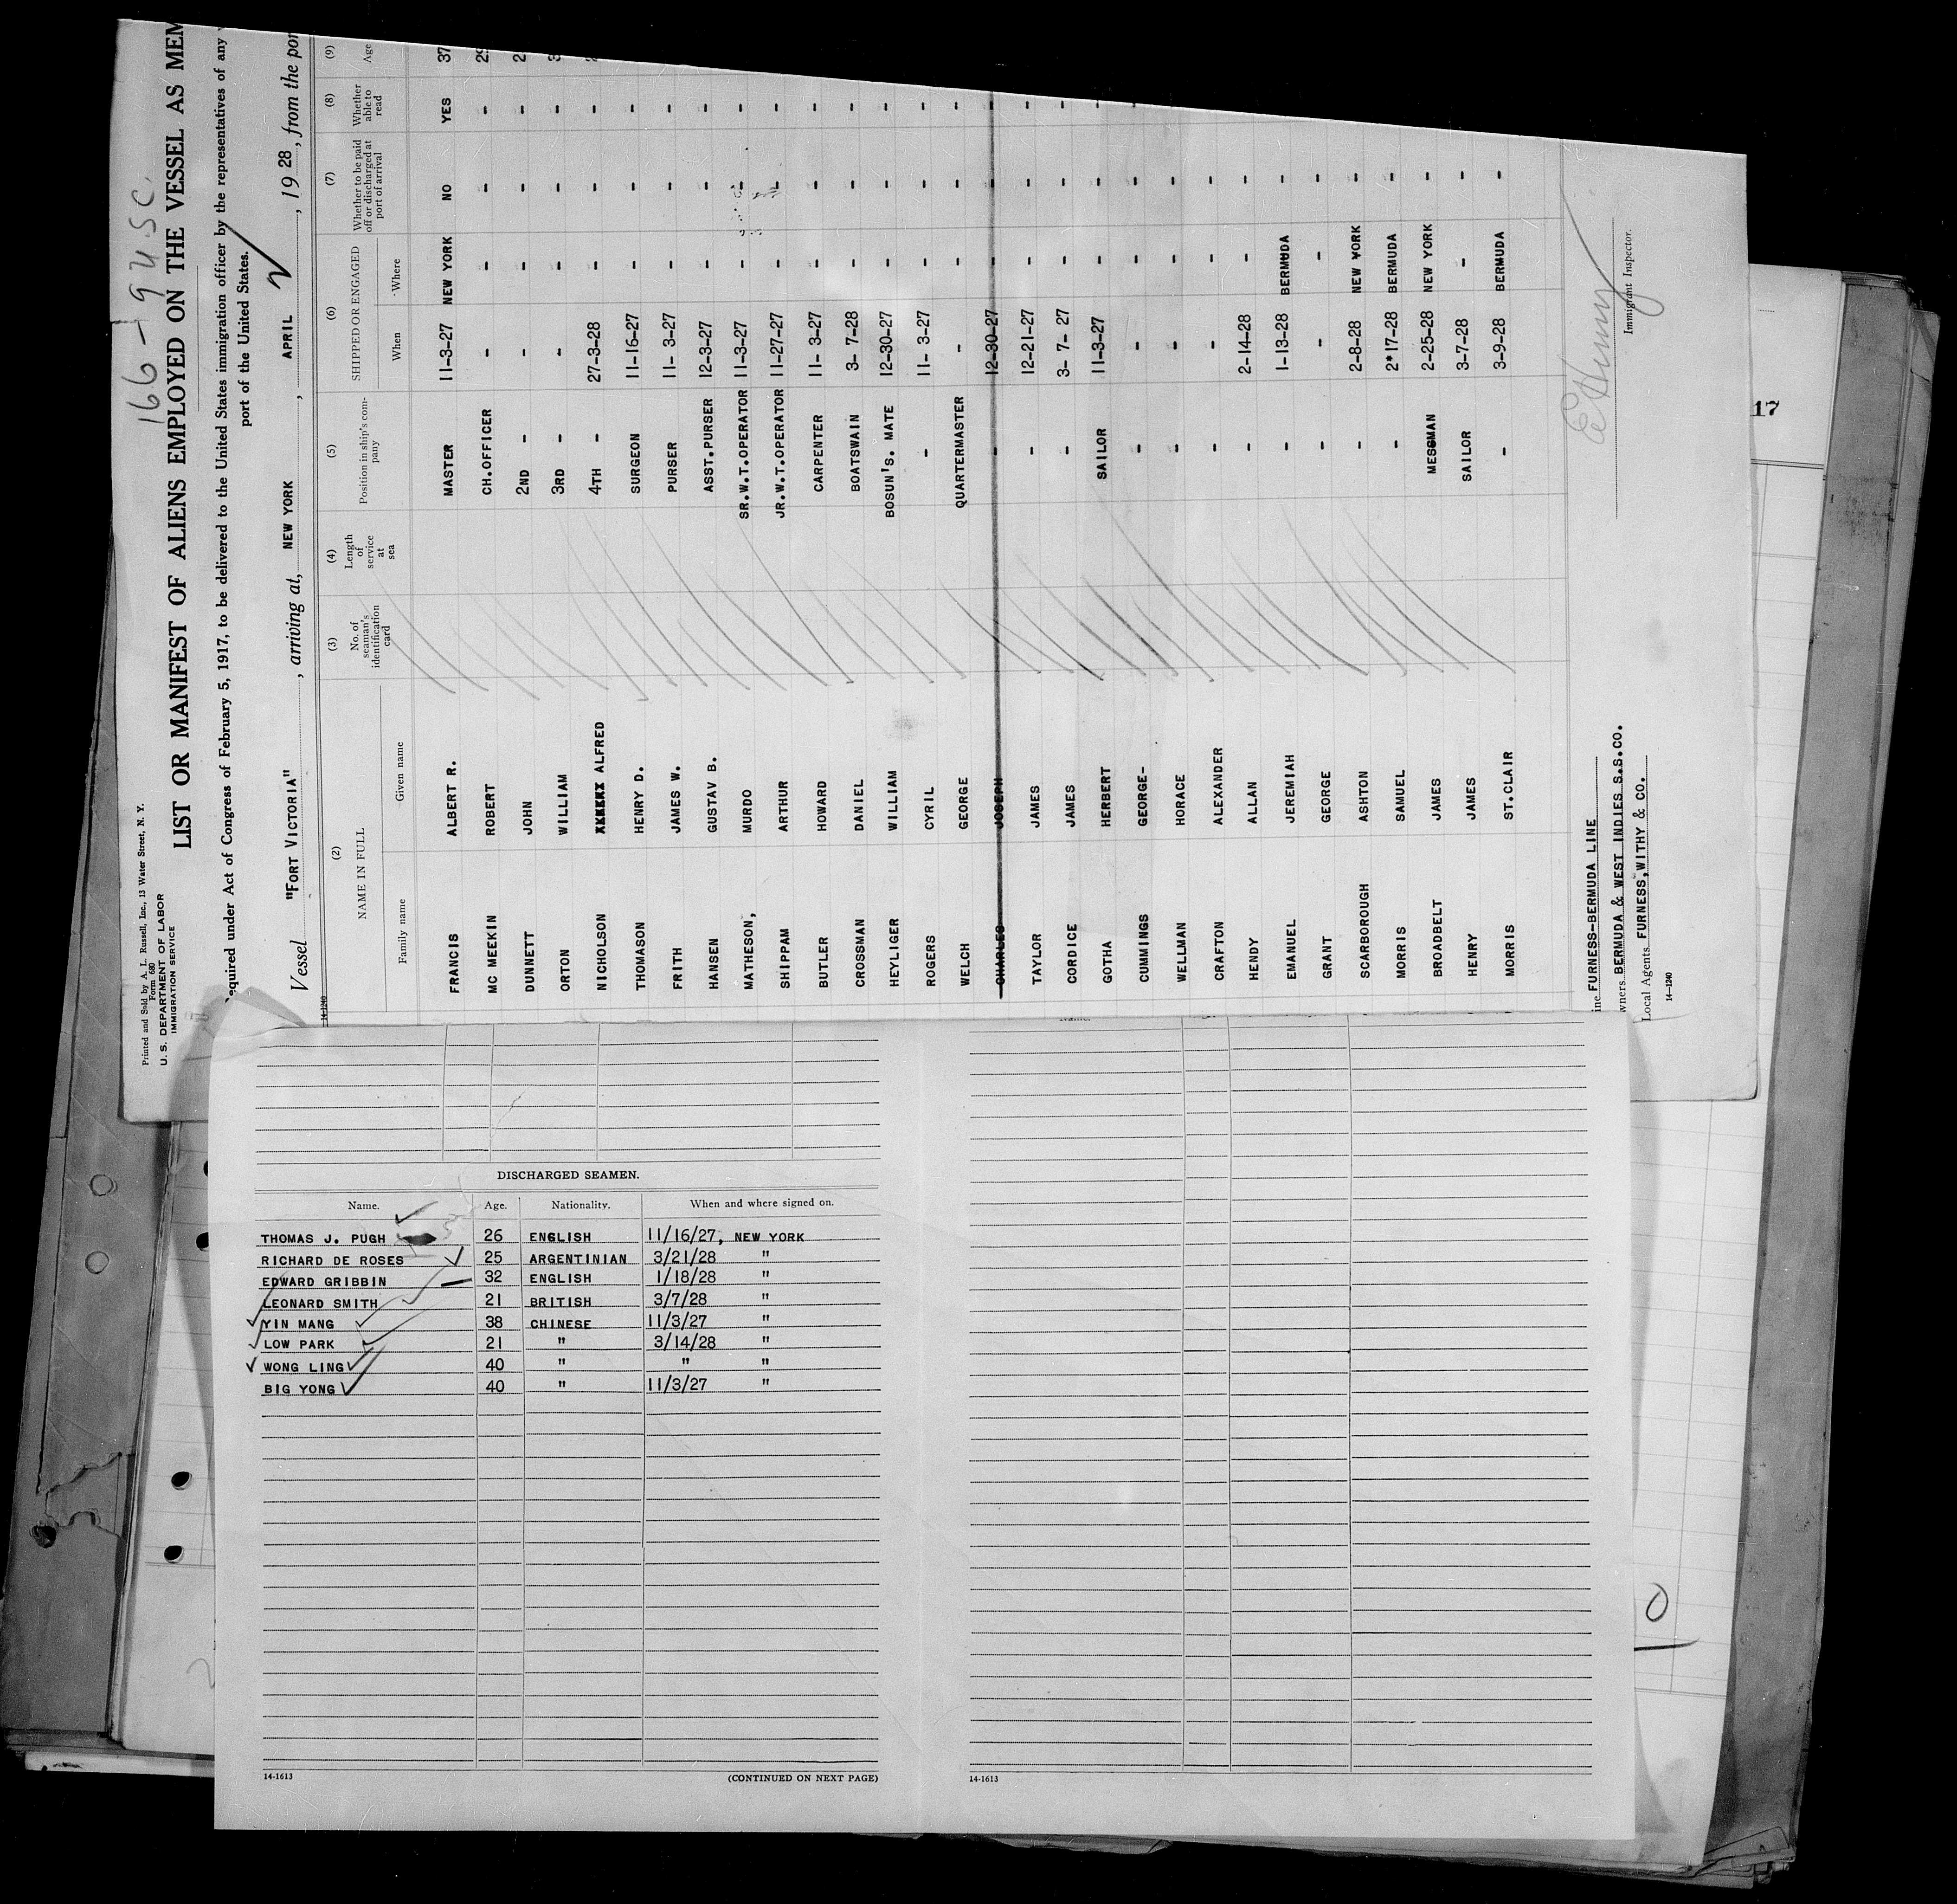 166 - 94 SC.
Printed and Sold by A. L. Russell, Inc., 13 Water Street, N. Y.
Form 680
U. S. DEPARTMENT OF LABOR
IMMIGRATION SERVICE
LIST OR MANIFEST OF ALIENS EMPLOYED ON THE VESSEL AS MEM
equired under Act of Congress of February 5, 1917, to be delivered to the United States immigration officer by the representatives of any
port of the United States.
Vessel "FORT VICTORIA", arriving at, NEW YORK, APRIL, 1928, from the por
14-1240
(2) (3) (4) (5) (6) (7) (8) (9)
NAME IN FULL No. of seaman's identification card Length of service at sea Position in ship's company SHIPPED OR ENGAGED Whether to be paid off or discharged at port of arrival Whether able to read Age
Family name Given name When Where
FRANCIS ALBERT R. MASTER 11-3-27 NEW YORK NO YES 37
MC MEEKIN ROBERT CH.OFFICER - - - -
DUNNETT JOHN 2ND - - - - -
ORTON WILLIAM 3RD - - - - -
NICHOLSON XXXXX ALFRED 4TH - 27-3-28 - - -
THOMASON HENRY D. SURGEON 11-16-27 - - -
FRITH JAMES W. PURSER 11- 3-27 - - -
HANSEN GUSTAV B. ASST.PURSER 12-3-27 - - -
MATHESON, MURDO SR.W.T.OPERATOR 11-3-27 - - -
SHIPPAM ARTHUR JR.W.T.OPERATOR 11-27-27 - - -
BUTLER HOWARD CARPENTER 11- 3-27 - - -
CROSSMAN DANIEL BOATSWAIN 3- 7-28 - - -
HEYLIGER WILLIAM BOSUN'S. MATE 12-30-27 - - -
ROGERS CYRIL - 11- 3-27 - - -
WELCH GEORGE QUARTERMASTER - - - -
CHARLES JOSEPH - 12-30-27 - - -
TAYLOR JAMES - 12-21-27 - - -
CORDICE JAMES - 3- 7- 27 - - -
GOTHA HERBERT SAILOR 11-3-27 - - -
CUMMINGS GEORGE- - - - - -
WELLMAN HORACE - - - -
CRAFTON ALEXANDER - - - -
HENDY ALLAN - 2-14-28 - -
EMANUEL JEREMIAH - 1-13-28 BERMUDA -
GRANT GEORGE - - - -
SCARBOROUGH ASHTON - 2-8-28 NEW YORK -
MORRIS SAMUEL - 2*17-28 BERMUDA -
BROADBELT JAMES MESSMAN 2-25-28 NEW YORK -
HENRY JAMES SAILOR 3-7-28 - -
MORRIS ST.CLAIR - 3-9-28 BERMUDA -
ine FURNESS-BERMUDA LINE
wners BERMUDA & WEST INDIES S.S.CO.
Local Agents FURNESS,WITHY & CO.
14-1240
Immigrant Inspector.
17
Name.
DISCHARGED SEAMEN.
Name. Age. Nationality. When and where signed on.
THOMAS J. PUGH 26 ENGLISH 11/16/27, NEW YORK
RICHARD DE ROSES 25 ARGENTINIAN 3/21/28 "
EDWARD GRIBBIN 32 ENGLISH 1/18/28 "
LEONARD SMITH 21 BRITISH 3/7/28 "
YIN MANG 38 CHINESE 11/3/27 "
LOW PARK 21 " 3/14/28 "
WONG LING 40 " " "
BIG YONG 40 " 11/3/27 "
14-1613
(CONTINUED ON NEXT PAGE)
14-1613
0